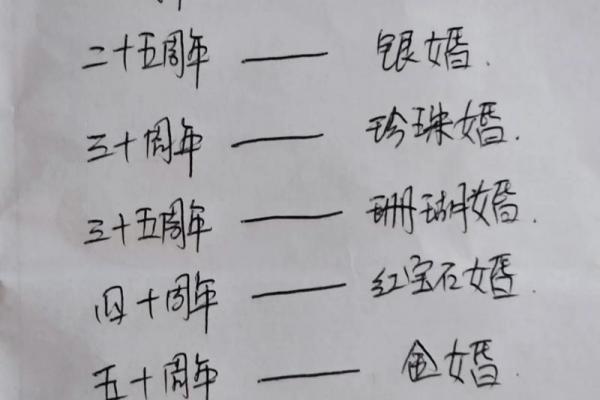 二十五周年——银婚.
三十周年——珍珠婚.
三十五周年——珊瑚婚.
四十周年——红宝石婚.
五十周年——金婚.